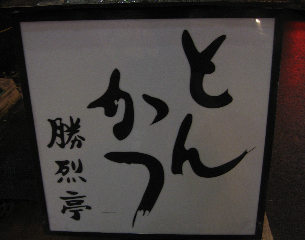 とん
かつ
勝烈亭